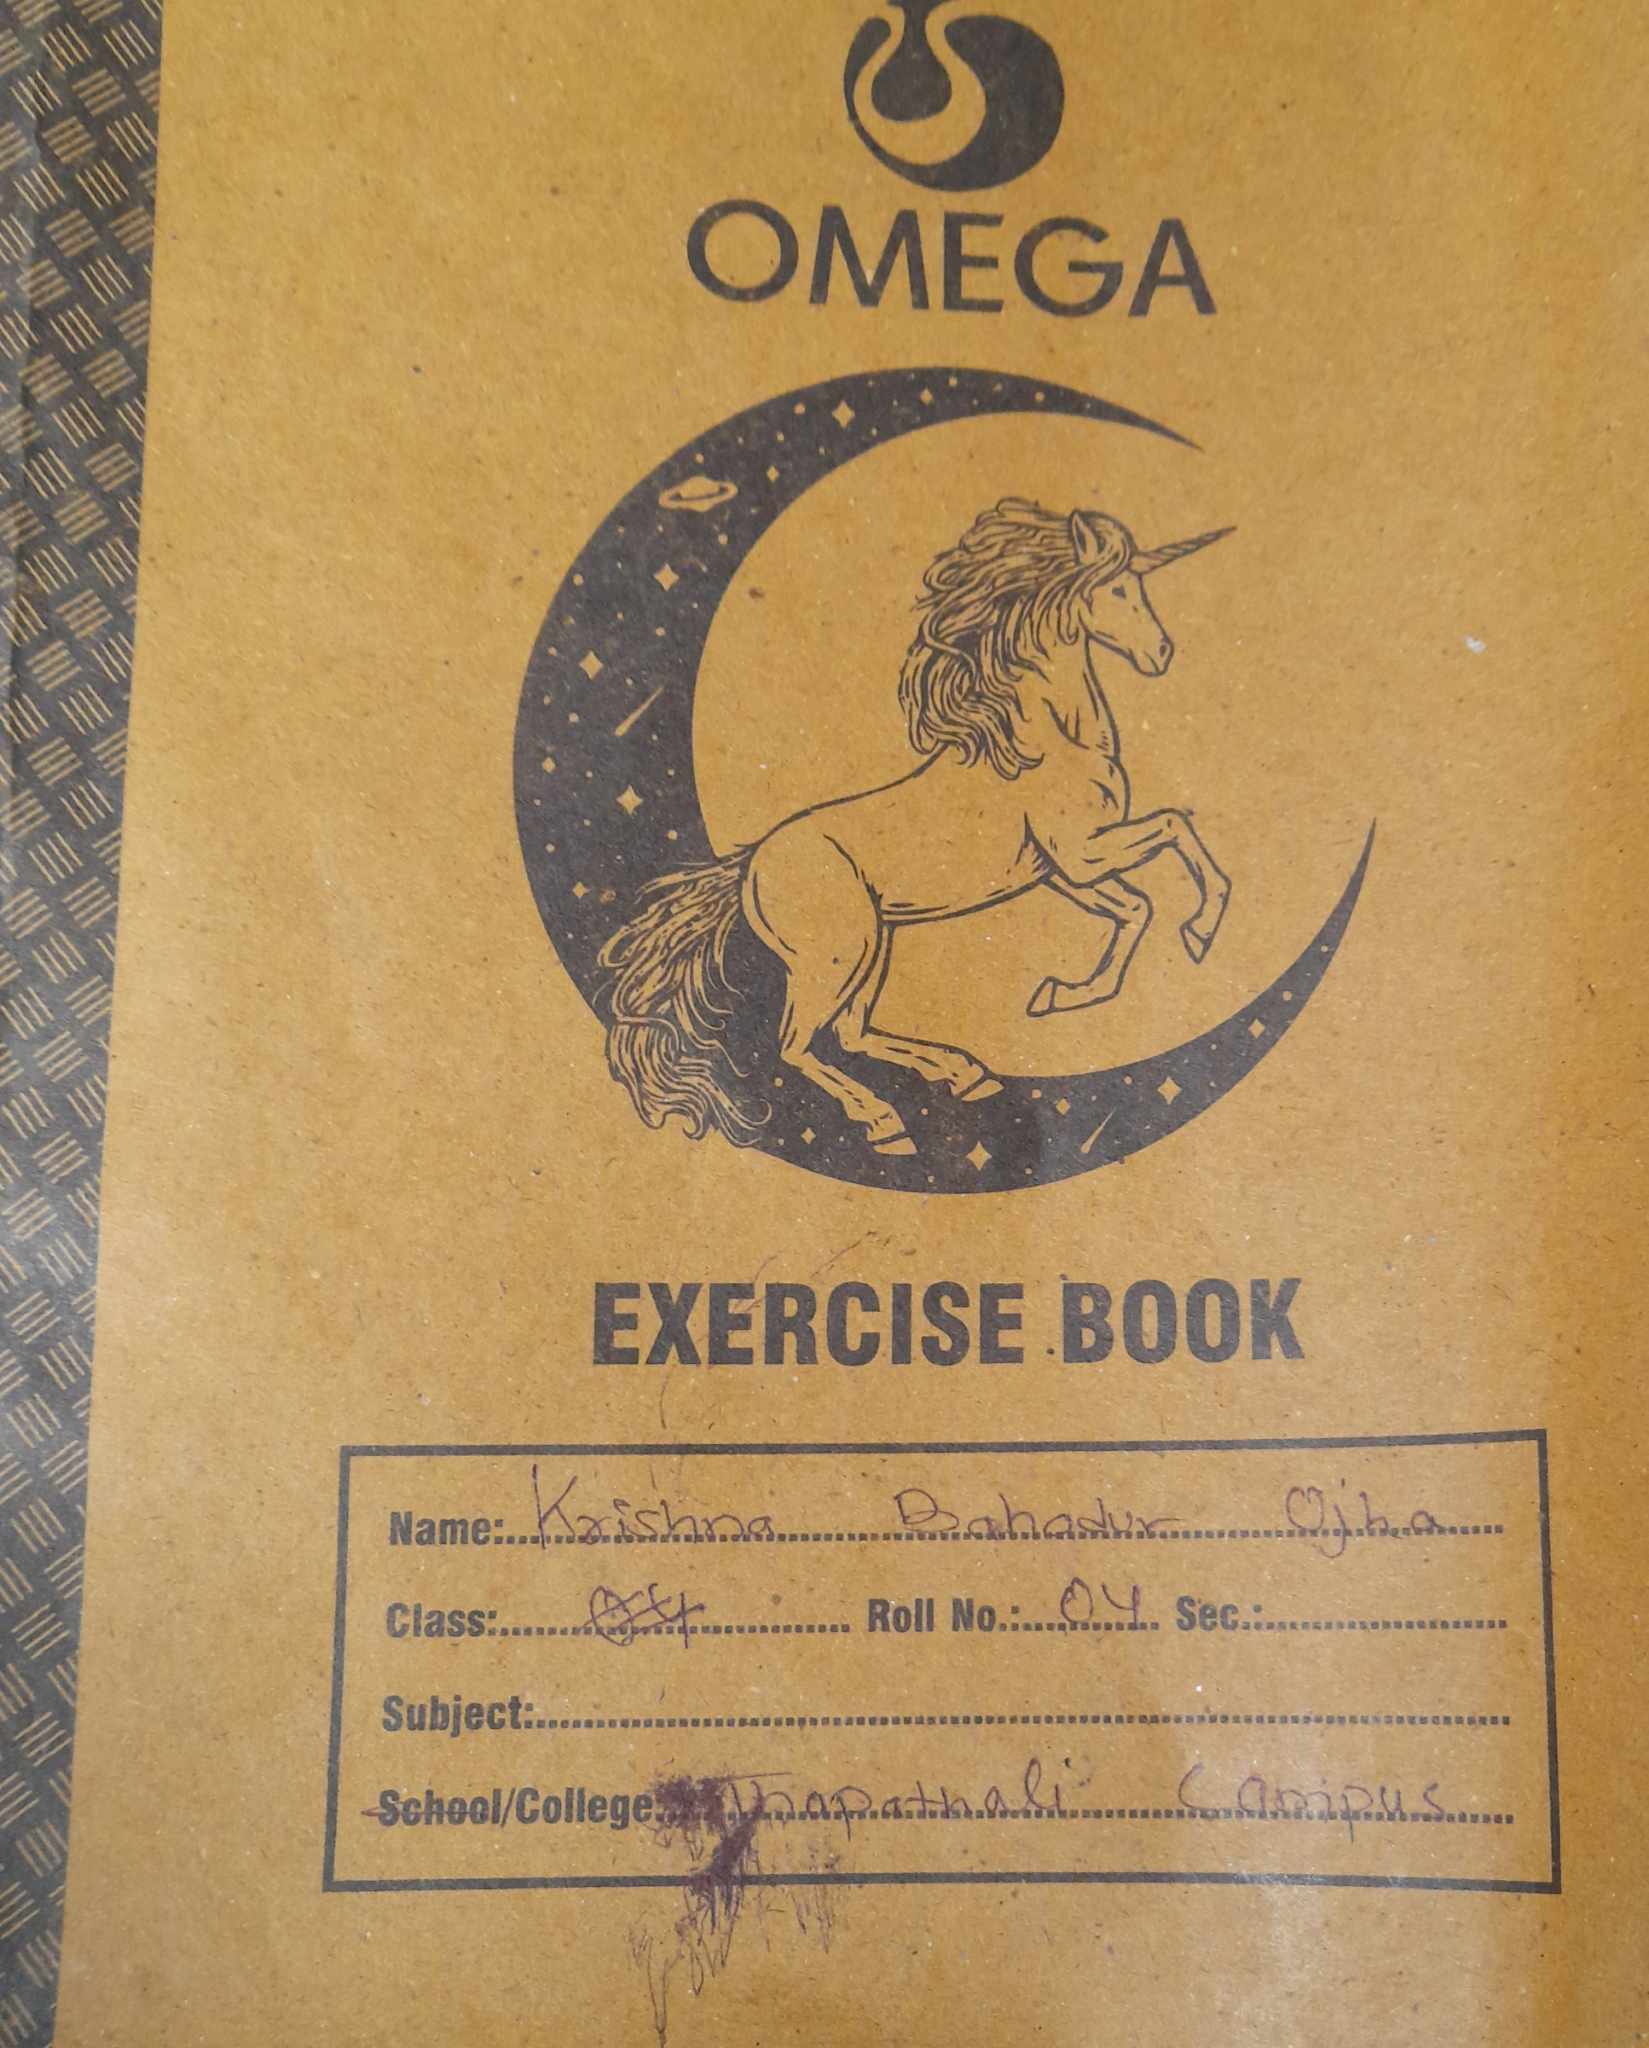 OMEGA
EXERCISE BOOK
Name: Krishna Bahadur Ojha
Class: Roll No.: 04 Sec.:
Subject:
School/College: Thapathali Campus